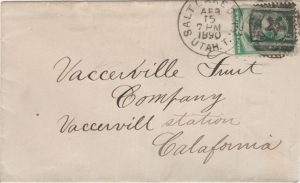 SALT LAKE
APR
15
7 PM
1890
UTAH.T.
Vaccerville Fruit
Company
Vaccervill station
Calafornia